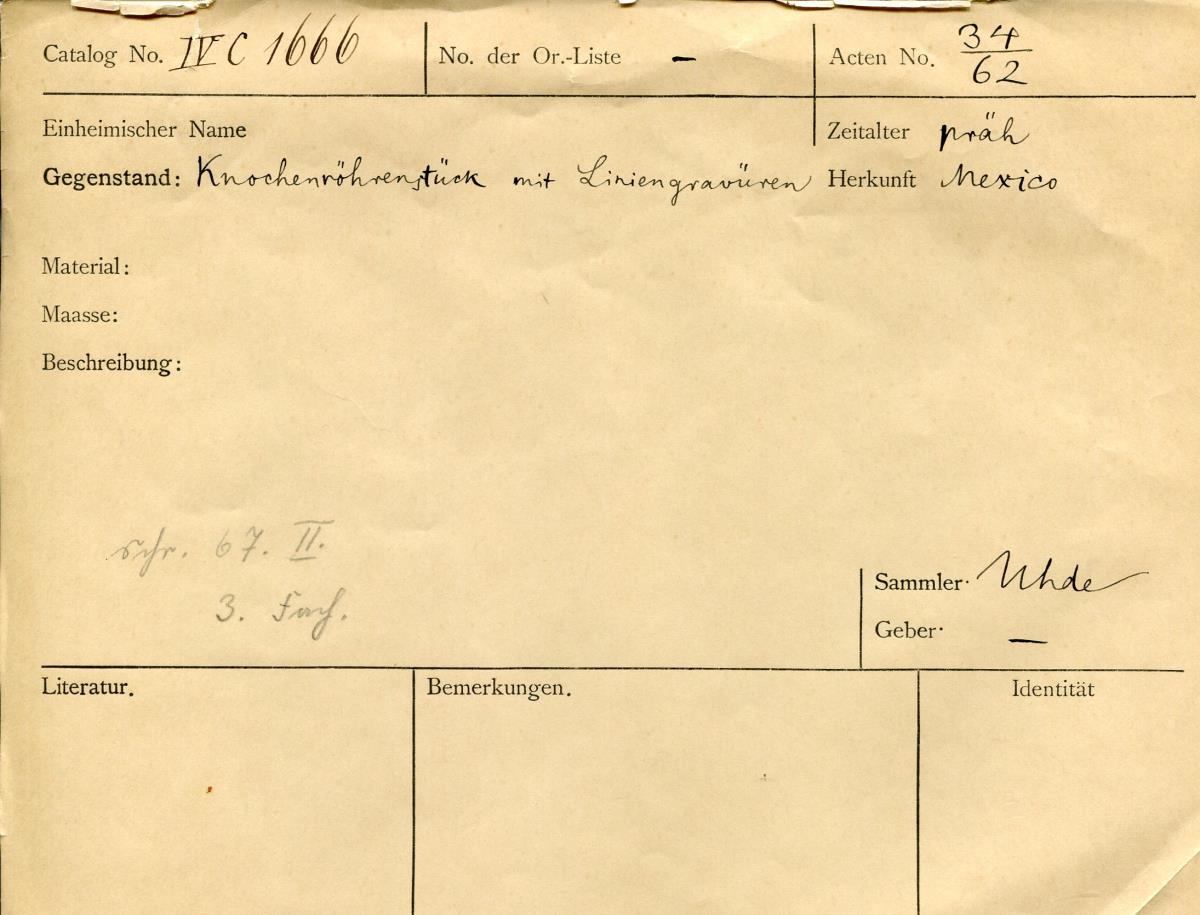 Catalog No. IV C 1666 No. der Or.-Liste – Acten No. 34/62
Einheimischer Name Zeitalter präh
Gegenstand: Knochenröhrenstück mit Liniengravüren Herkunft Mexico
Material:
Maasse:
Beschreibung:
schr. 67. II.
3. Fach.
Sammler. Uhde
Geber. —
Literatur. Bemerkungen. Identität